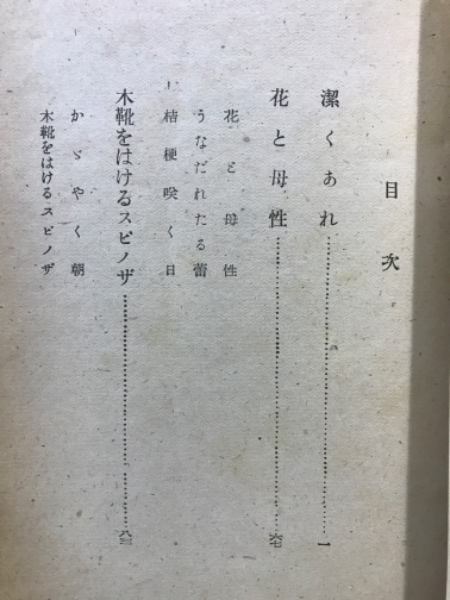 目次
潔くあれ……一
花と母性……六七
花と母性
うなだれたる蕾
桔梗咲く日
木靴をはけるスピノザ……八三
かゞやく朝
木靴をはけるスピノザ